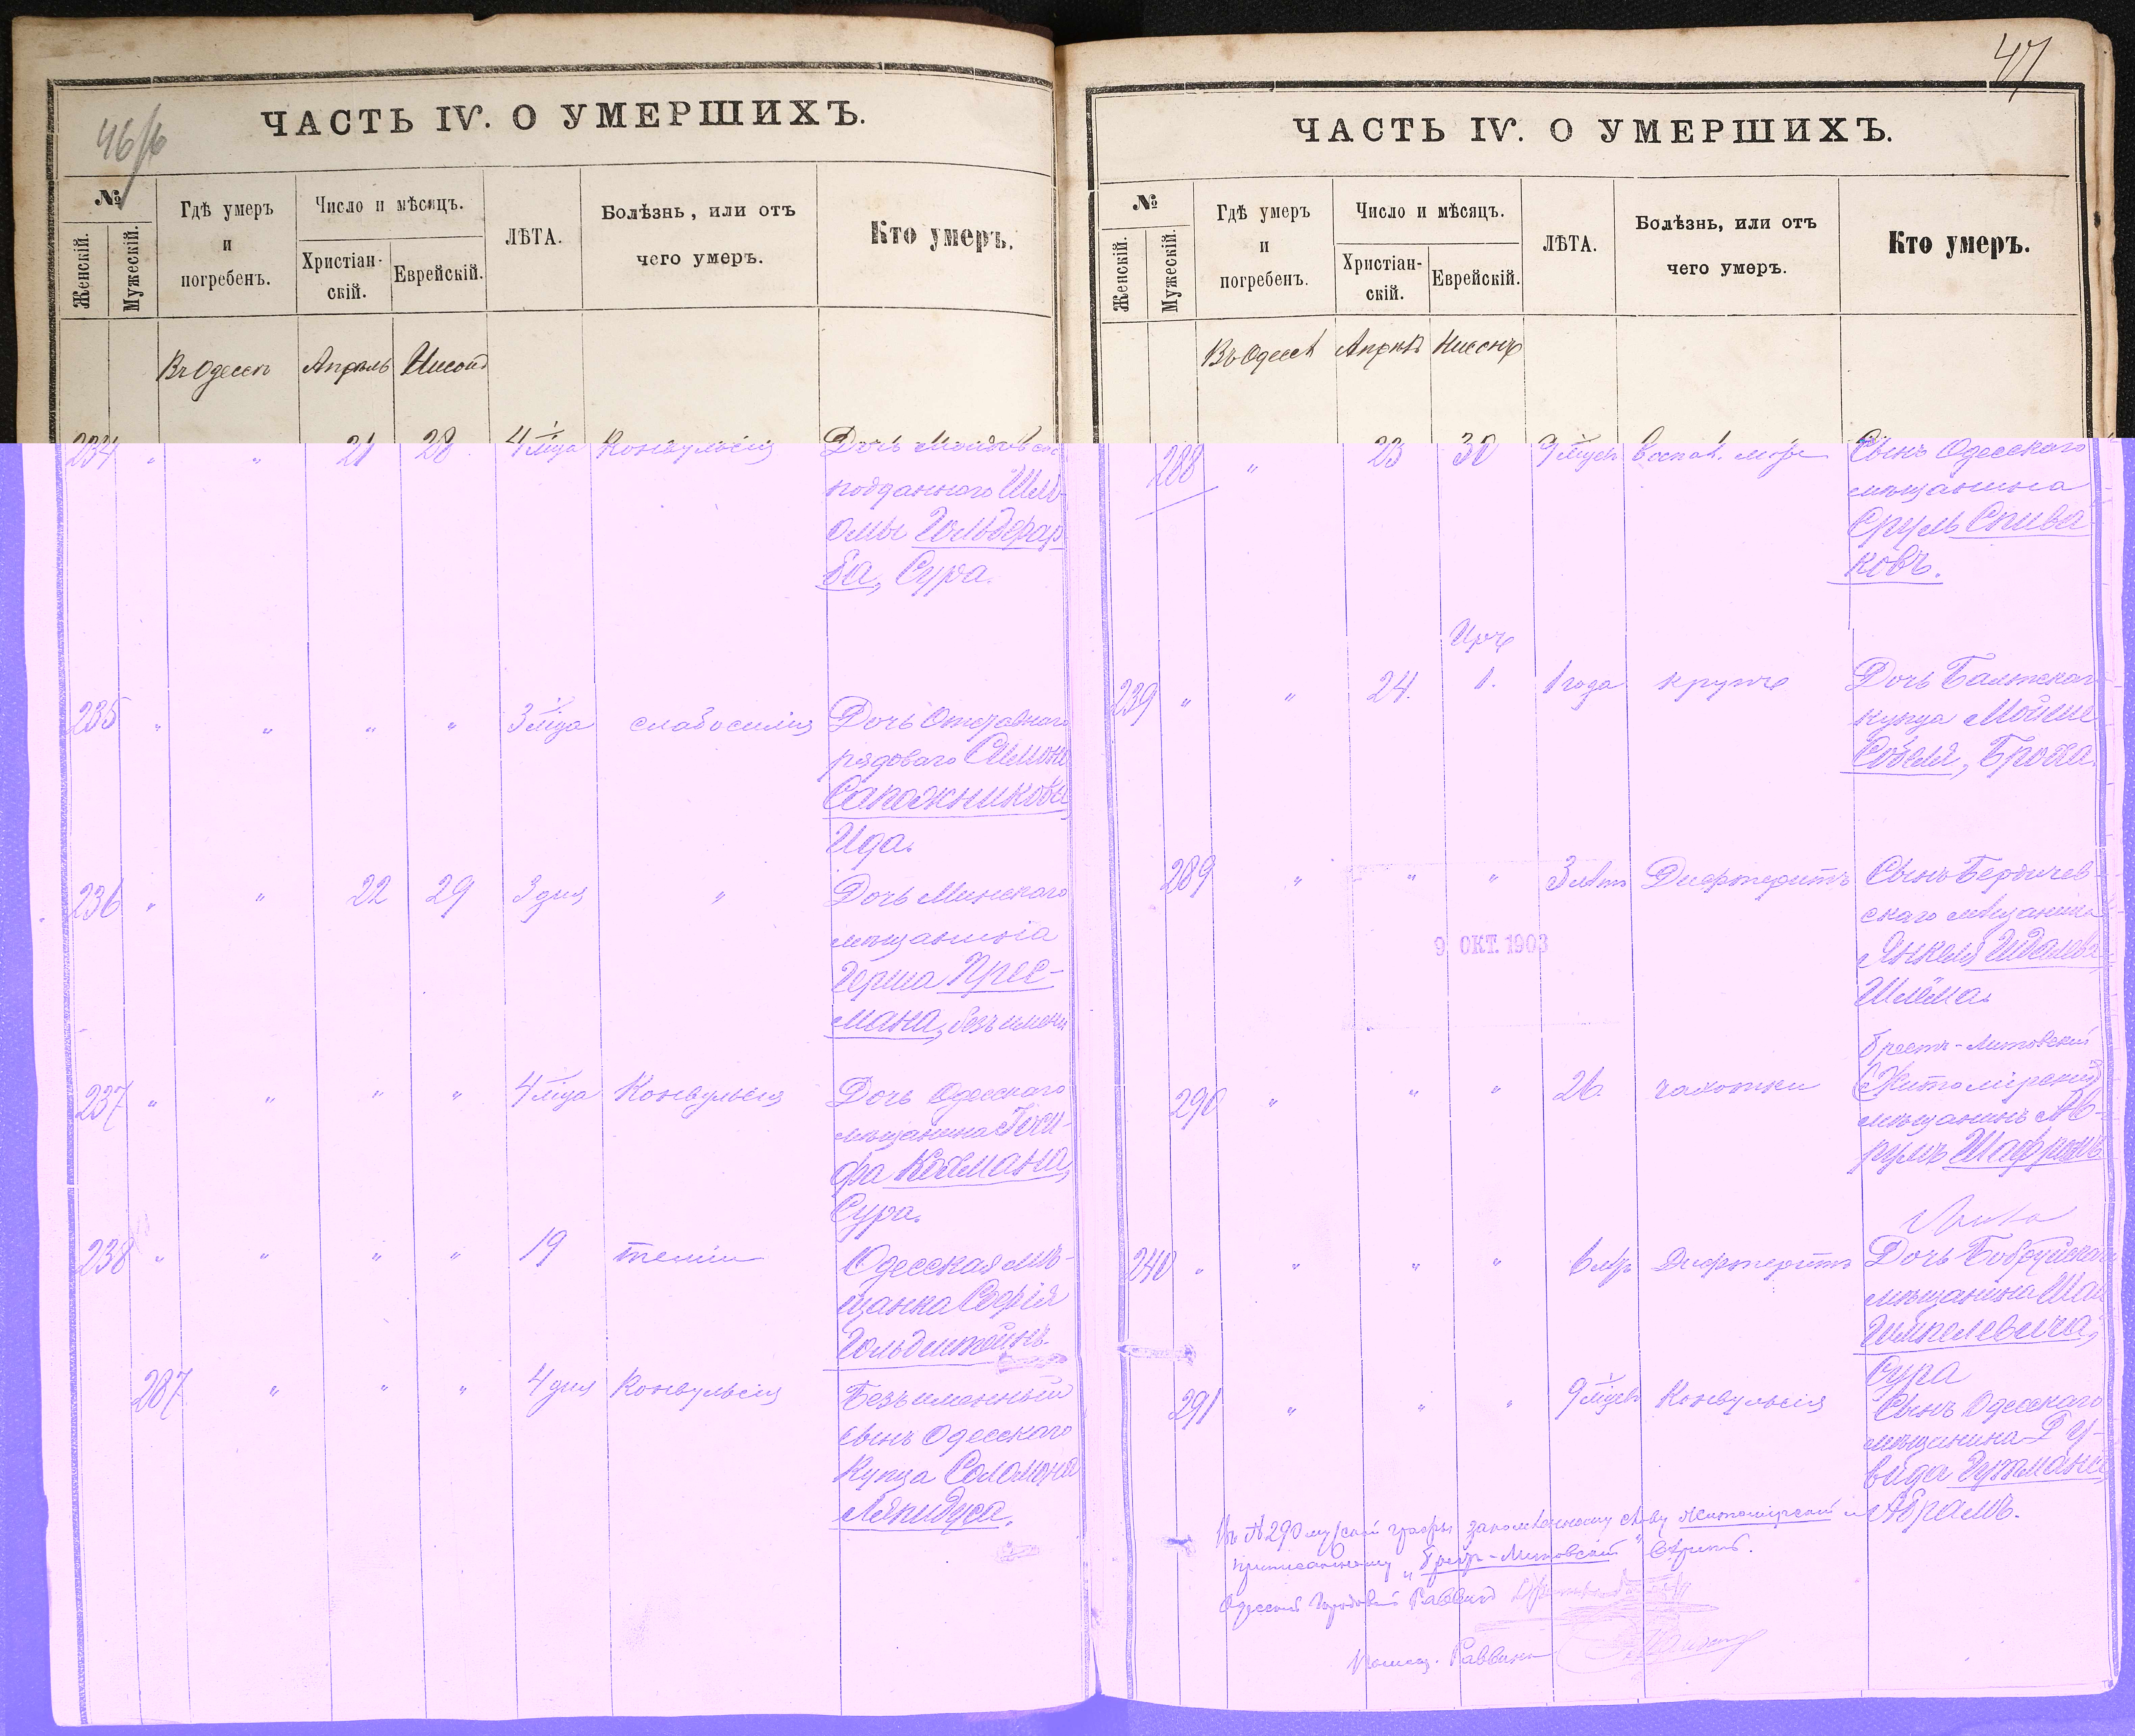 46/6
ЧАСТЬ IV. О УМЕРШИХЪ.
№
Женскій.
Мужескій.
Гдѣ умеръ
и
погребенъ.
Число и мѣсяцъ.
Христіан-
скій.
Еврейскій.
ЛѢТА.
Болѣзнь, или отъ
чего умеръ.
Кто умеръ.
Въ Одессѣ Апрѣль Нисонъ
234 " " 21 28 4 м-ца Конвульсія Дочь Молдовско
подданнаго Шлё-
омы Гольдфар
ба, Сура.
235 " " " " 3 м-ца слабосилія Дочь Отставнаго
рядоваго Симона
Сапожникова
Ида.
236 " " 22 29 3 дня " Дочь Минскаго
мѣщанина
Герша Прес-
мана, безъ имени
237 " " " " 4 м-ца Конвульсія Дочь Одесскаго
мѣщанина Іоси-
фа Койлмана,
Сура.
238 " " " " 19 тифа Одесская мѣ-
щанка Софія
Гольдштейнъ.
287 " " " 4 дня Конвульсія Безъименный
сынъ Одесскаго
Купца Соломона
Лапидуса.
47
ЧАСТЬ IV. О УМЕРШИХЪ.
№
Женскій.
Мужескій.
Гдѣ умеръ
и
погребенъ.
Число и мѣсяцъ.
Христіан-
скій.
Еврейскій.
ЛѢТА.
Болѣзнь, или отъ
чего умеръ.
Кто умеръ.
Въ Одессѣ Апрѣль Нисонъ
288 " 23 30 9 м-цев воспал. мозга Сынъ Одесскаго
мѣщанина
Сруль Спива
ковъ.
Иръ
239 " " 24. 1. 1 года крупъ Дочь Балтскаго
купца Мойше
Собеля, Броха.
289 " " " 3 лѣтъ Дифтеритъ Сынъ Бердичев-
скаго мѣщанина
Янкеля
Шлёма.
9 ОКТ. 1903
Брестъ-Литовскій
290 " " " 26. чахотки (Житомірскій)
мѣщанинъ Аб-
румъ
240 " " " " 6 лѣт Дифтеритъ Дочь Бобруйскаго
мѣщанина
Гимпелевича,
Сура
291 " " " 9 м-цев Конвульсія Сынъ Одесскаго
мѣщанина Ду-
вида Гутмана,
Абрамъ.
Въ № 290 мужской графы слову Житомірскій и
приписанному "Брестъ-Литовскій" вѣрить.
Одесскій Городовой Раввинъ
Помощ. Раввина